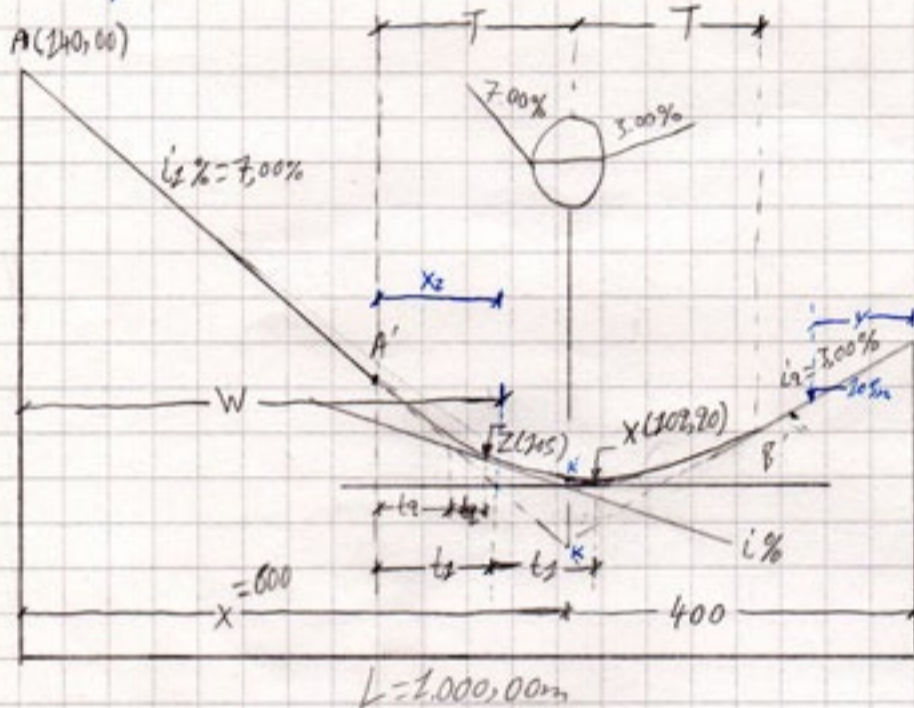 T T
A(140,00)
7.00% 3.00%
i1% = 7,00%
x2
A'
y
i2 = 3,00%
105m
W
Z(105)
X(102,80)
K'
B'
t2 t2
K
i%
t1 t1
X = 600 400
L = 1.000,00m